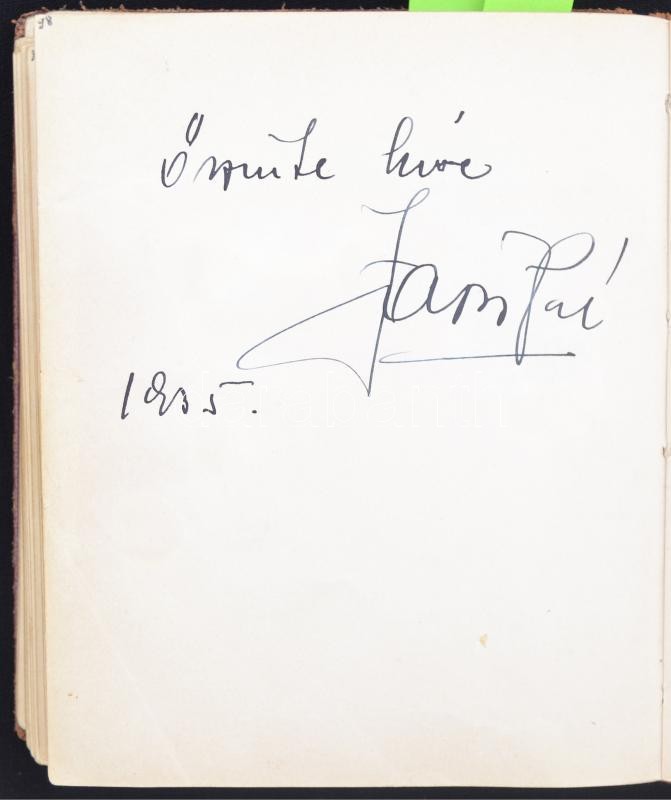 98
őszinte híve
Jávor Pál
1935.